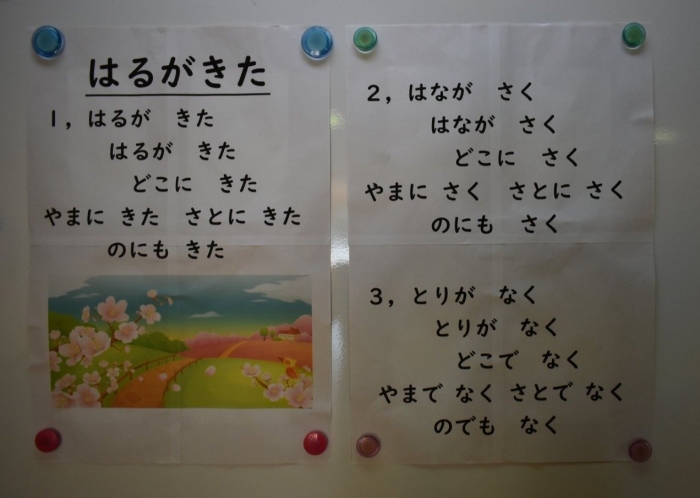 はるがきた
1，はるが　きた
はるが　きた
どこに　きた
やまに きた　さとに きた
のにも きた
2，はなが　さく
はなが　さく
どこに　さく
やまに さく　さとに さく
のにも　さく
3，とりが　なく
とりが　なく
どこで　なく
やまで なく さとで なく
のでも　なく